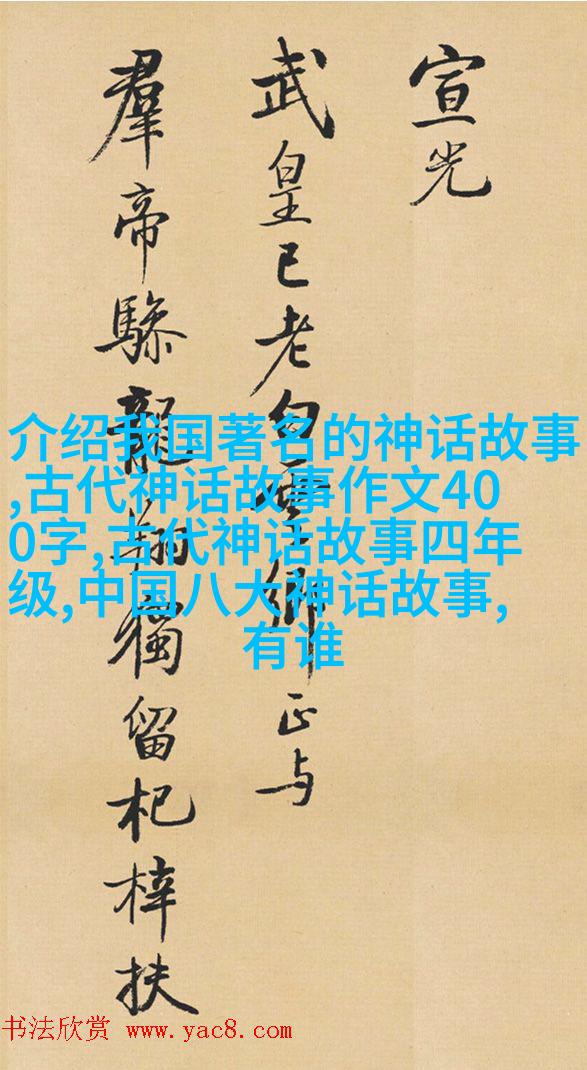 宣光
武皇已老白雲鄉正与
羣帝驂龍翔獨留杞梓扶
介绍我国著名的神话故事
,古代神话故事作文40
0字,古代神话故事四年
级,中国八大神话故事,
有谁
书法欣赏 www.yac8.com